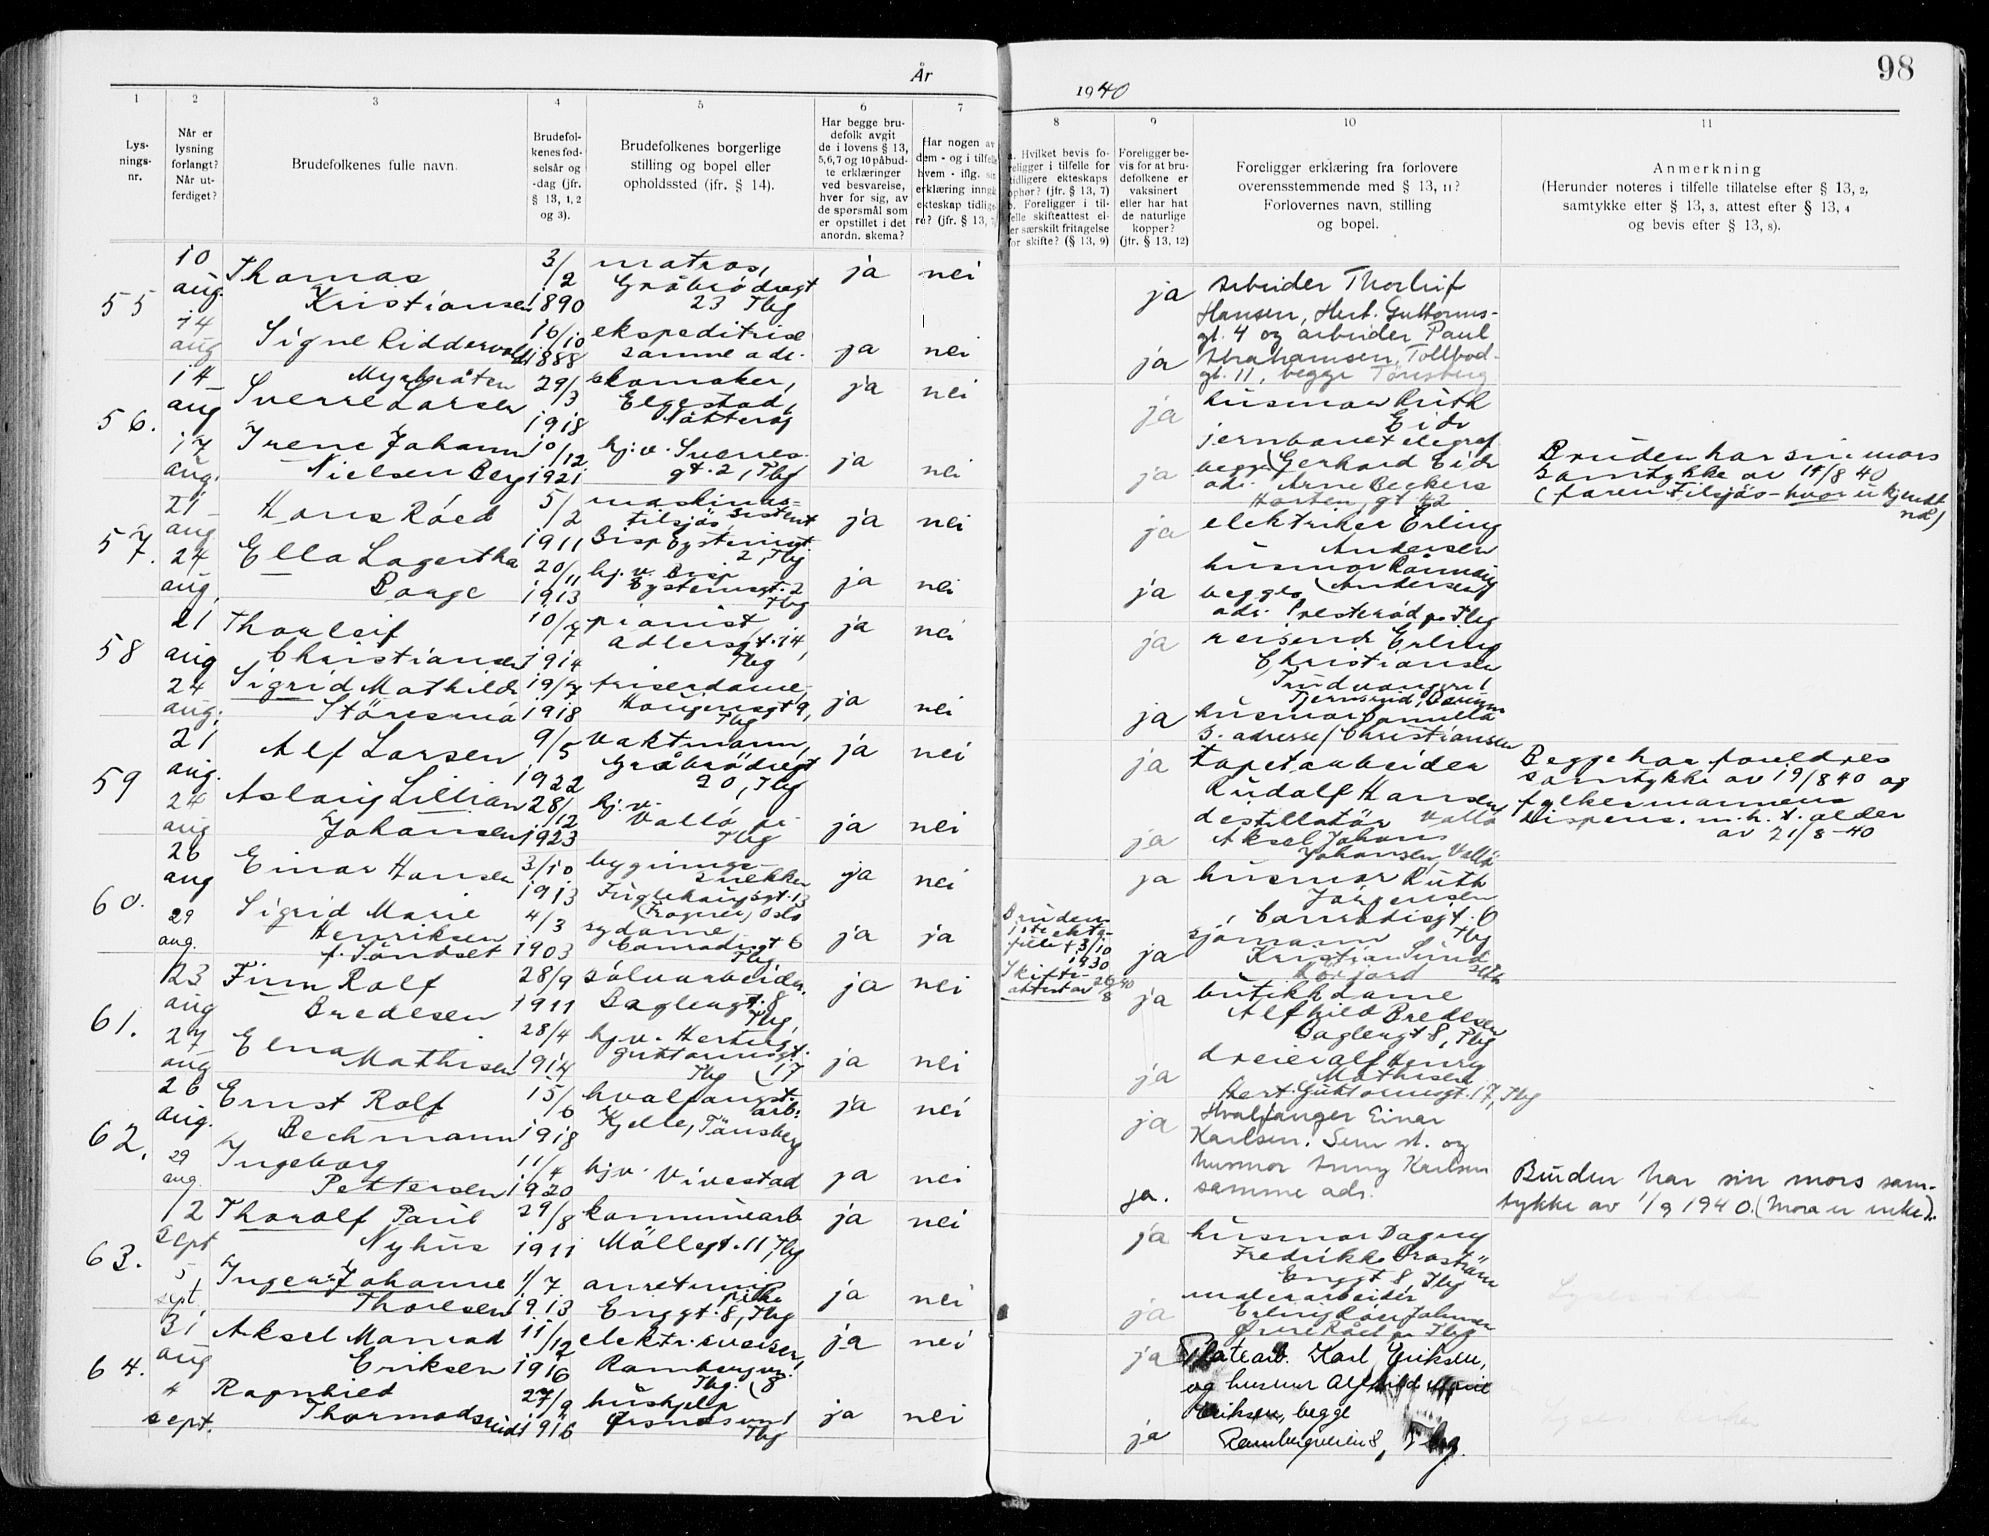 År
1940
98
1
2
3
4
5
6
7
8
9
10
11
Lys-
nings-
nr.
Når er
lysning
forlangt?
Når ut-
ferdiget?
Brudefolkenes fulle navn.
Brudefol-
kenes fød-
selsår og
-dag (jfr.
§ 13, 1, 2
og 3).
Brudefolkenes borgerlige
stilling og bopel eller
opholdssted (jfr. § 14).
Har begge bru-
defolk avgit
de i lovens § 13,
5,6,7 og 10 påbud-
te erklæringer
ved besvarelse,
hver for sig, av
de spørsmål som
er opstillet i det
anordn. skema?
Har nogen av
dem - og i tilfelle
hvem - iflg. sin
erklæring inngå
ekteskap tidlige
re? (jfr. § 13,
a. Hvilket bevis fo-
religger i tilfelle for
tidligere ekteskaps
ophør? (jfr. § 13, 7)
b. Foreligger i til-
felle skifteattest el-
ler særskilt fritagelse
for skifte? (§ 13, 9)
Foreligger be-
vis for at bru-
defolkene er
vaksinert
eller har hat
de naturlige
kopper?
(jfr. § 13, 12)
Foreligger erklæring fra forlovere
overensstemmende med § 13, 11?
Forlovernes navn, stilling
og bopel.
Anmerkning
(Herunder noteres i tilfelle tillatelse efter § 13, 2,
samtykke efter § 13, 3, attest efter § 13, 4
og bevis efter § 13, 8).
55
10
aug.
Thomas
Kristiansen
3/
/2
1890
matros,
Gråbrødregt
23 Tbg
ja
nei
ja
Arbeider Thorleif
Hansen, Hert. Guttorms-
gt. 4 og arbeider Paul
14
aug
Signe Riddervold
16/10
1888
ekspeditrise
samme adr.
ja
nei
ja
Abrahamsen, Tollbod-
gt. 11, begge Tønsberg
56.
14
aug
Sverre Larsen
29/
/3
1918
skomaker,
Elgestad,
Nøtterøy
ja
nei
ja
husmor Ruth
Eide
jernbanetelegraf.
17
aug.
Irene Johann
Nielsen Berg
10/
/12
1921
hj.v. Sverres-
gt. 2, Tbg
ja
nei
ja
begge Gerhard Eide
adr. Arne Beckers
Horten, gt 42
Bruden har sin mors
samtykke av 14/8 40
(faren tilsjøs - hvor er kjendt
nd)
57.
21
aug
Hans Røed
5/
/2
1911
maskinas-
sistent
tilsjøs,
Bisp Eysteinsgt.
2, Tbg
ja
nei
ja
elektriker Erling
Andersen
24
aug.
Ella Lagertha
Borge
20/
/11
1913
hj.v. Bisp
Eysteinsgt. 2
Tbg
ja
nei
ja
husmor Rønnaug
begges Andersen
adr. Presterød pr Tbg
58
21
aug
Thorleif
Christiansen
10/
/7
1914
pianist,
Adlersgt. 14,
Tbg
ja
nei
ja
reisende Erling
Christiansen
24
aug.
Sigrid Mathilde
19/7
1918
friserdame,
Haugensgt 9,
Tbg
ja
nei
ja
husmor
s. adresse / Christiansen
59
21
aug.
Alf Larsen
9/
/5
1922
vaktmann,
Gråbrødregt
20, Tbg
ja
nei
ja
tapetarbeider
Rudolf Hansen
Begge har foreldres
samtykke av 19/8 40 og
fylkesmannens
dispens. m.h.t. alder
av 21/8-40
24
aug
Aslaug Lillian
Johansen
28/
/12
1923
hj.v.
Vallø pr
Tbg
ja
nei
ja
destillatør Vallø
Aksel Johans
Johansen, Vallø
60.
26
aug
Einar Hansen
3/10
1913
bygnings-
snekker
Fuglehaugsgt. 13
(Frogner) Oslo
ja
nei
ja
husmor Ruth
Jørgensen
Conradisgt. 6
Tbg
29
aug.
Sigrid Marie
Henriksen
f. Søndset
4/3
1903
sydame
Conradisgt 6
Tbg
ja
ja
Bruden
1ste ekte-
felle † 3/10
1930
Skifte-
attest av 26/8 40
ja
sjømann
Kristian
61.
23
aug
Finn Rolf
Bredesen
28/9
1911
sølvarbeider.
Baglergt. 8
Tbg,
ja
nei
ja
butikkdame
Alfhild Bredesen
Baglergt 8, Tbg
27
aug
Elna
Mathisen
28/4
1914
hj.v. Hertug
Guttormsgt.
17
Tbg
ja
nei
ja
dreier Alf Henry
Mathisen
Hert. Guttormsgt. 17, Tbg
62.
26
aug.
Ernst Rolf
Bechmann
15/
/6
1918
hvalfangst-
arb.
Kjelle, Tønsberg
ja
nei
ja
Hvalfanger Einar
Karlsen. Sem st. og
29
aug.
Ingeborg
Pettersen
11/
/4
1920
hjv. Vivestad
ja
nei
ja.
husmor Anny Karlsen
samme adr.
Bruden har sin mors sam-
tykke av 1/9 1940. (Mora er enke).
63.
2
sept
Thorolf Paul
Nyhus
29/
/8
1911
kommunearb
Møllegt. 11 Tbg
ja
nei
ja
husmor Dagny
Fredrikke
Enggt 8, Tbg
5,
sept,
Inger Johanne
Thoresen
1/7
1913
anretning
pike
Enggt. 8, Tbg
ja
nei
ja
64.
31
aug
Aksel Monrad
Eriksen
11/
/12
1916
elektr. sveiser,
Rambergvn.
8
Tbg.
ja
nei
ja
Platearb. Karl Eriksen,
og husmor Alfhild Marie
4
sept.
Ragnhild
Thormodsrud
27/
/9
1916
hushjelp
Tbg
ja
nei
ja
Eriksen, begge
Rambergveien 8, Tbg.